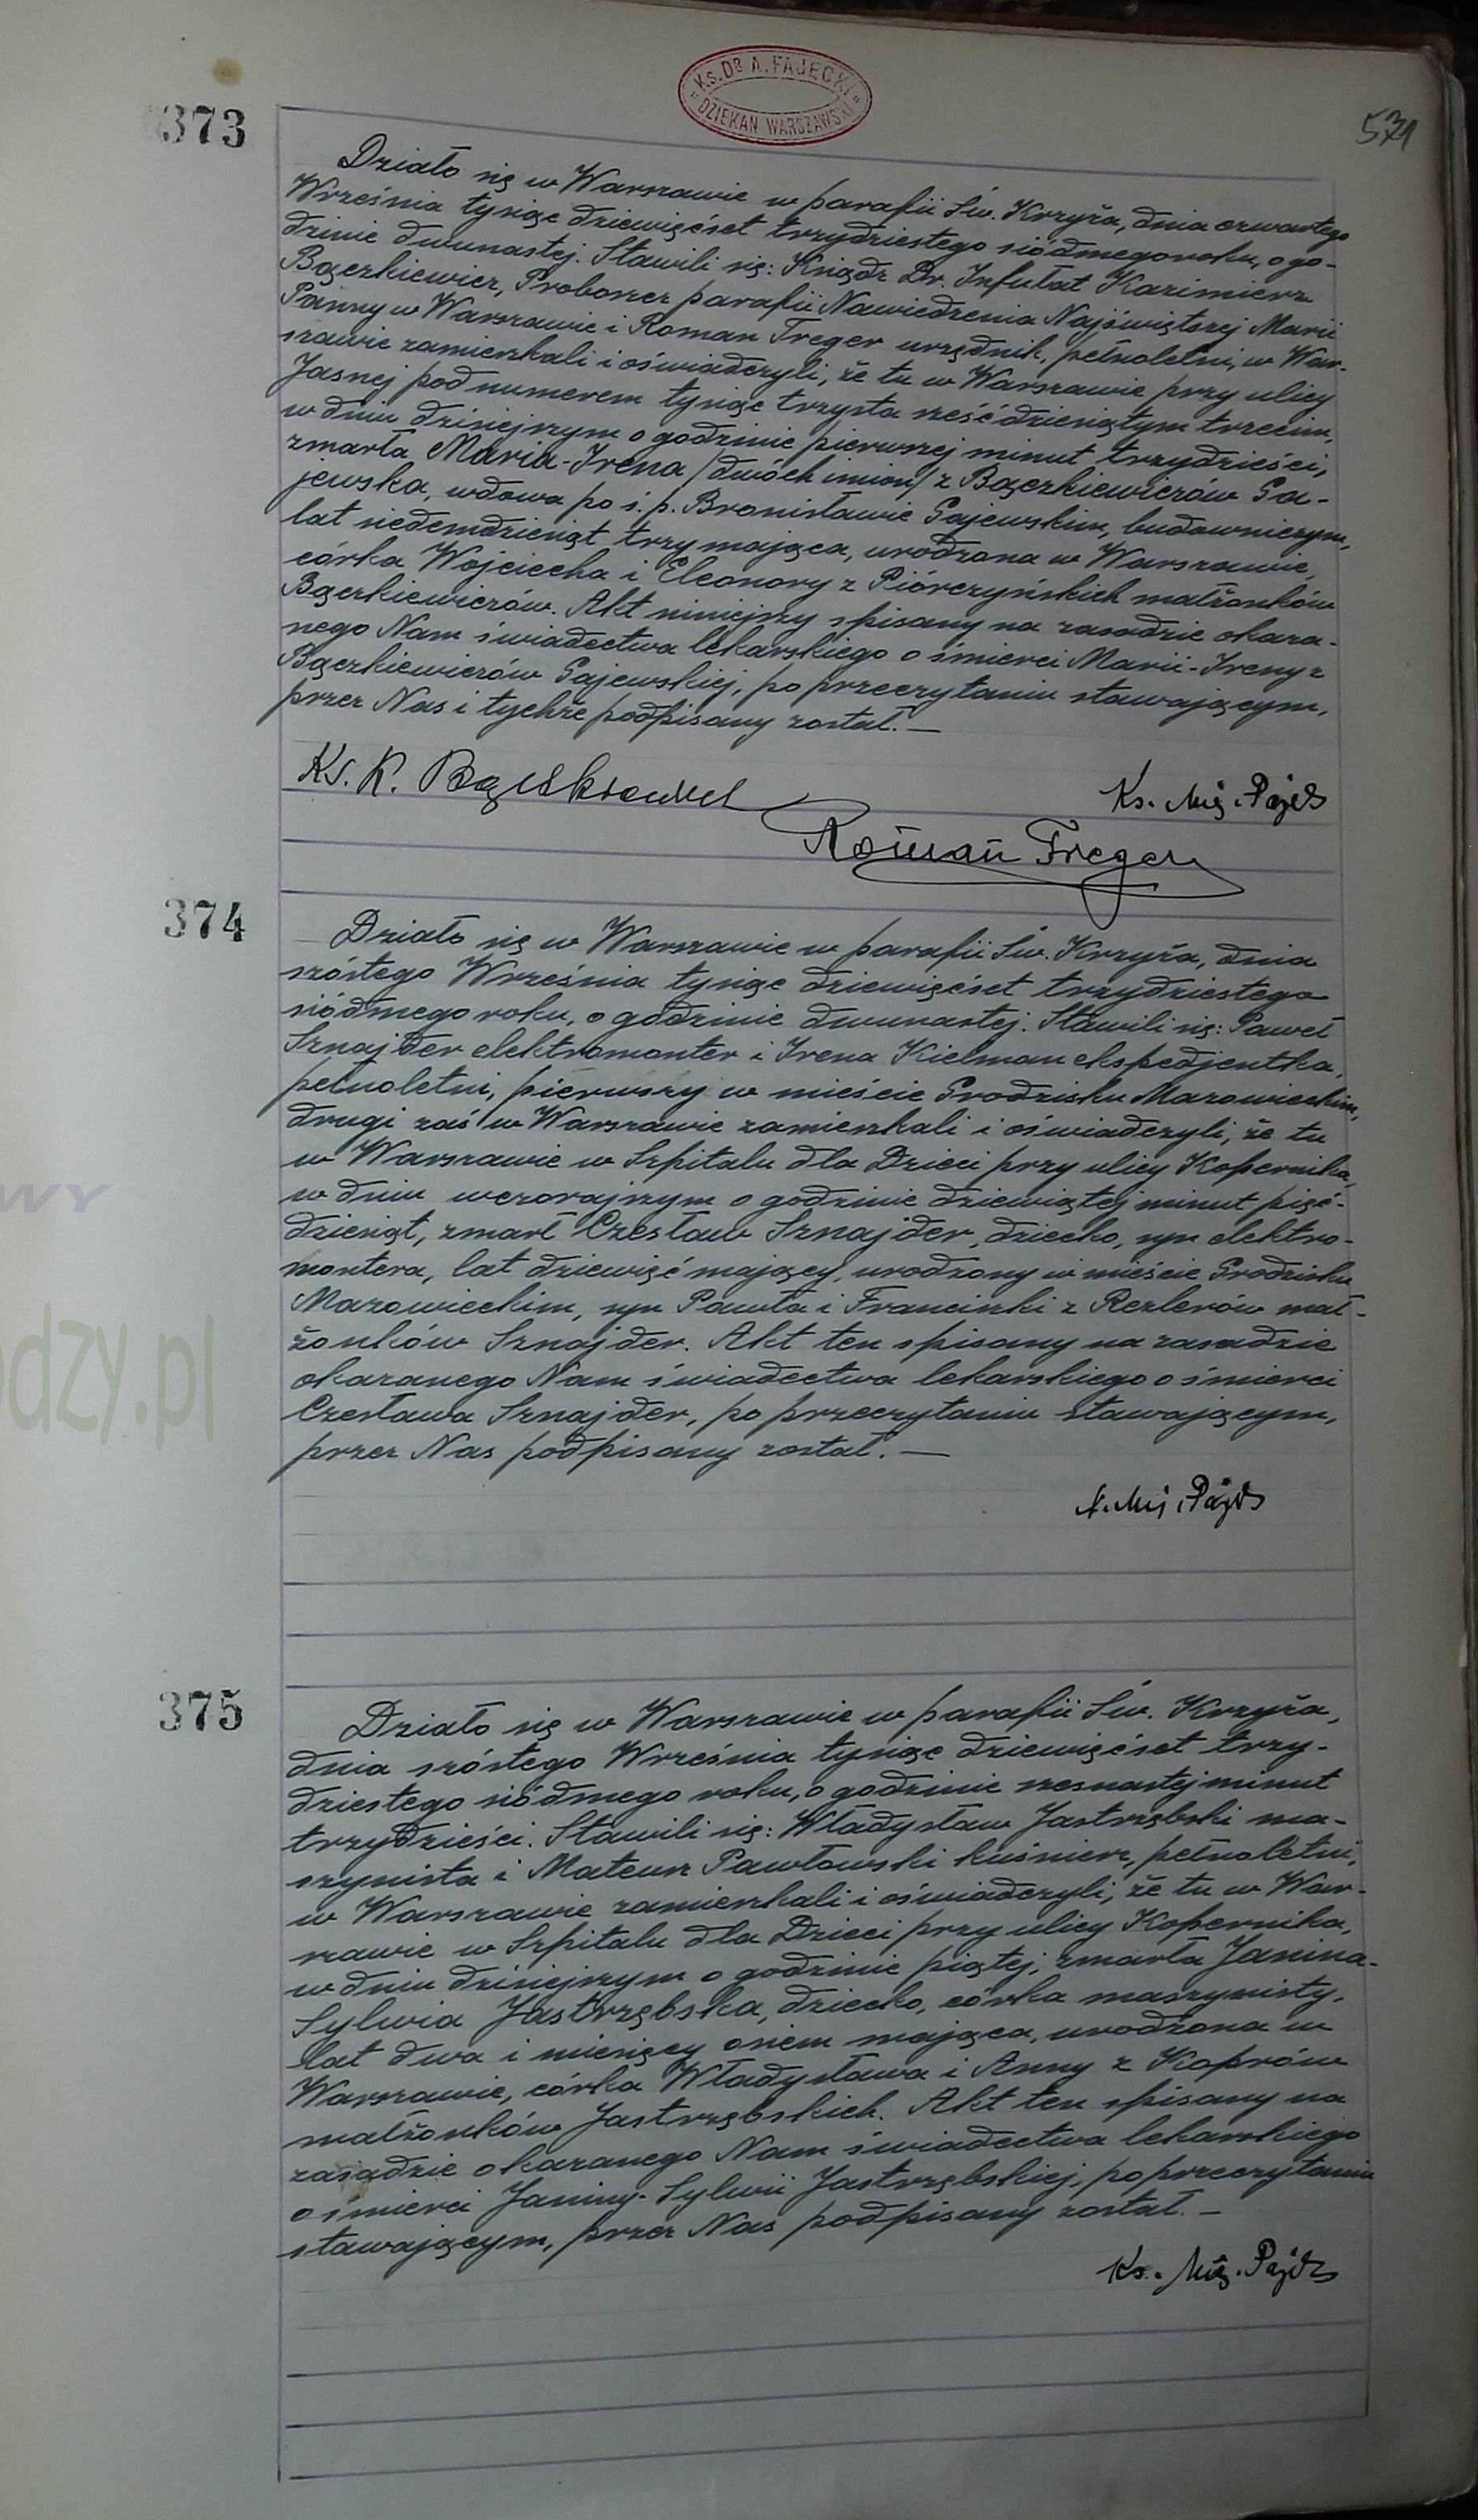 KS. DR A. FAJĘCKI
DZIEKAN WARSZAWSKI
571
373
Działo się w Warszawie w parafii Św. Krzyża, dnia czwartego
Września tysiąc dziewięćset trzydziestego siódmego roku, o go-
dzinie dwunastej. Stawili się: Ksiądz Dr. Infułat Kazimierz
Bączkiewicz, Proboszcz parafii Nawiedzenia Najświętszej Marii
Panny w Warszawie i Roman Treger urzędnik, pełnoletni, w War-
szawie zamieszkali i oświadczyli, że tu w Warszawie przy ulicy
Jasnej pod numerem tysiąc trzysta sześćdziesiątym trzecim,
w dniu dzisiejszym o godzinie pierwszej minut trzydzieści,
zmarła Maria-Irena /dwóch imion/ z Bączkiewiczów Ga-
jewska, wdowa po ś. p. Bronisławie Gajewskim, budowniczym,
lat siedemdziesiąt trzy mająca, urodzona w Warszawie,
córka Wojciecha i Eleonory z Piórczyńskich małżonków
Bączkiewiczów. Akt niniejszy spisany na zasadzie okaza-
nego Nam świadectwa lekarskiego o śmierci Marii-Ireny z
Bączkiewiczów Gajewskiej, po przeczytaniu stawającym,
przez Nas i tychże podpisany został. —
Ks. K. Bączkiewicz
Ks.
Roman Treger
374
Działo się w Warszawie w parafii Św. Krzyża, dnia
szóstego Września tysiąc dziewięćset trzydziestego
siódmego roku, o godzinie dwunastej. Stawili się: Paweł
Sznajder elektromonter i Irena Kielman ekspedjentka,
pełnoletni, pierwszy w mieście Grodzisku Mazowieckim,
drugi zaś w Warszawie zamieszkali i oświadczyli, że tu
w Warszawie w Szpitalu dla Dzieci przy ulicy Kopernika,
w dniu wczorajszym o godzinie dziewiątej minut pięć-
dziesiąt, zmarł Czesław Sznajder, dziecko, syn elektro-
montera, lat dziewięć mający, urodzony w mieście Grodzisku
Mazowieckim, syn Pawła i Franciszki z Rezlerów mał-
żonków Sznajder. Akt ten spisany na zasadzie
okazanego Nam świadectwa lekarskiego o śmierci
Czesława Sznajder, po przeczytaniu stawającym,
przez Nas podpisany został. —
375
Działo się w Warszawie w parafii Św. Krzyża,
dnia szóstego Września tysiąc dziewięćset trzy-
dziestego siódmego roku, o godzinie szesnastej minut
trzydzieści. Stawili się: Władysław Jastrzębski ma-
szynista i Mateusz Pawłowski kuśnierz, pełnoletni,
w Warszawie zamieszkali i oświadczyli, że tu w War-
szawie w Szpitalu dla Dzieci przy ulicy Kopernika,
w dniu dzisiejszym o godzinie piątej, zmarła Janina-
Sylwia Jastrzębska, dziecko, córka maszynisty,
lat dwa i miesięcy osiem mająca, urodzona w
Warszawie, córka Władysława i Anny z Koprów
małżonków Jastrzębskich. Akt ten spisany na
zasadzie okazanego Nam świadectwa lekarskiego
o śmierci Janiny-Sylwii Jastrzębskiej, po przeczytaniu
stawającym, przez Nas podpisany został. —
Ks.